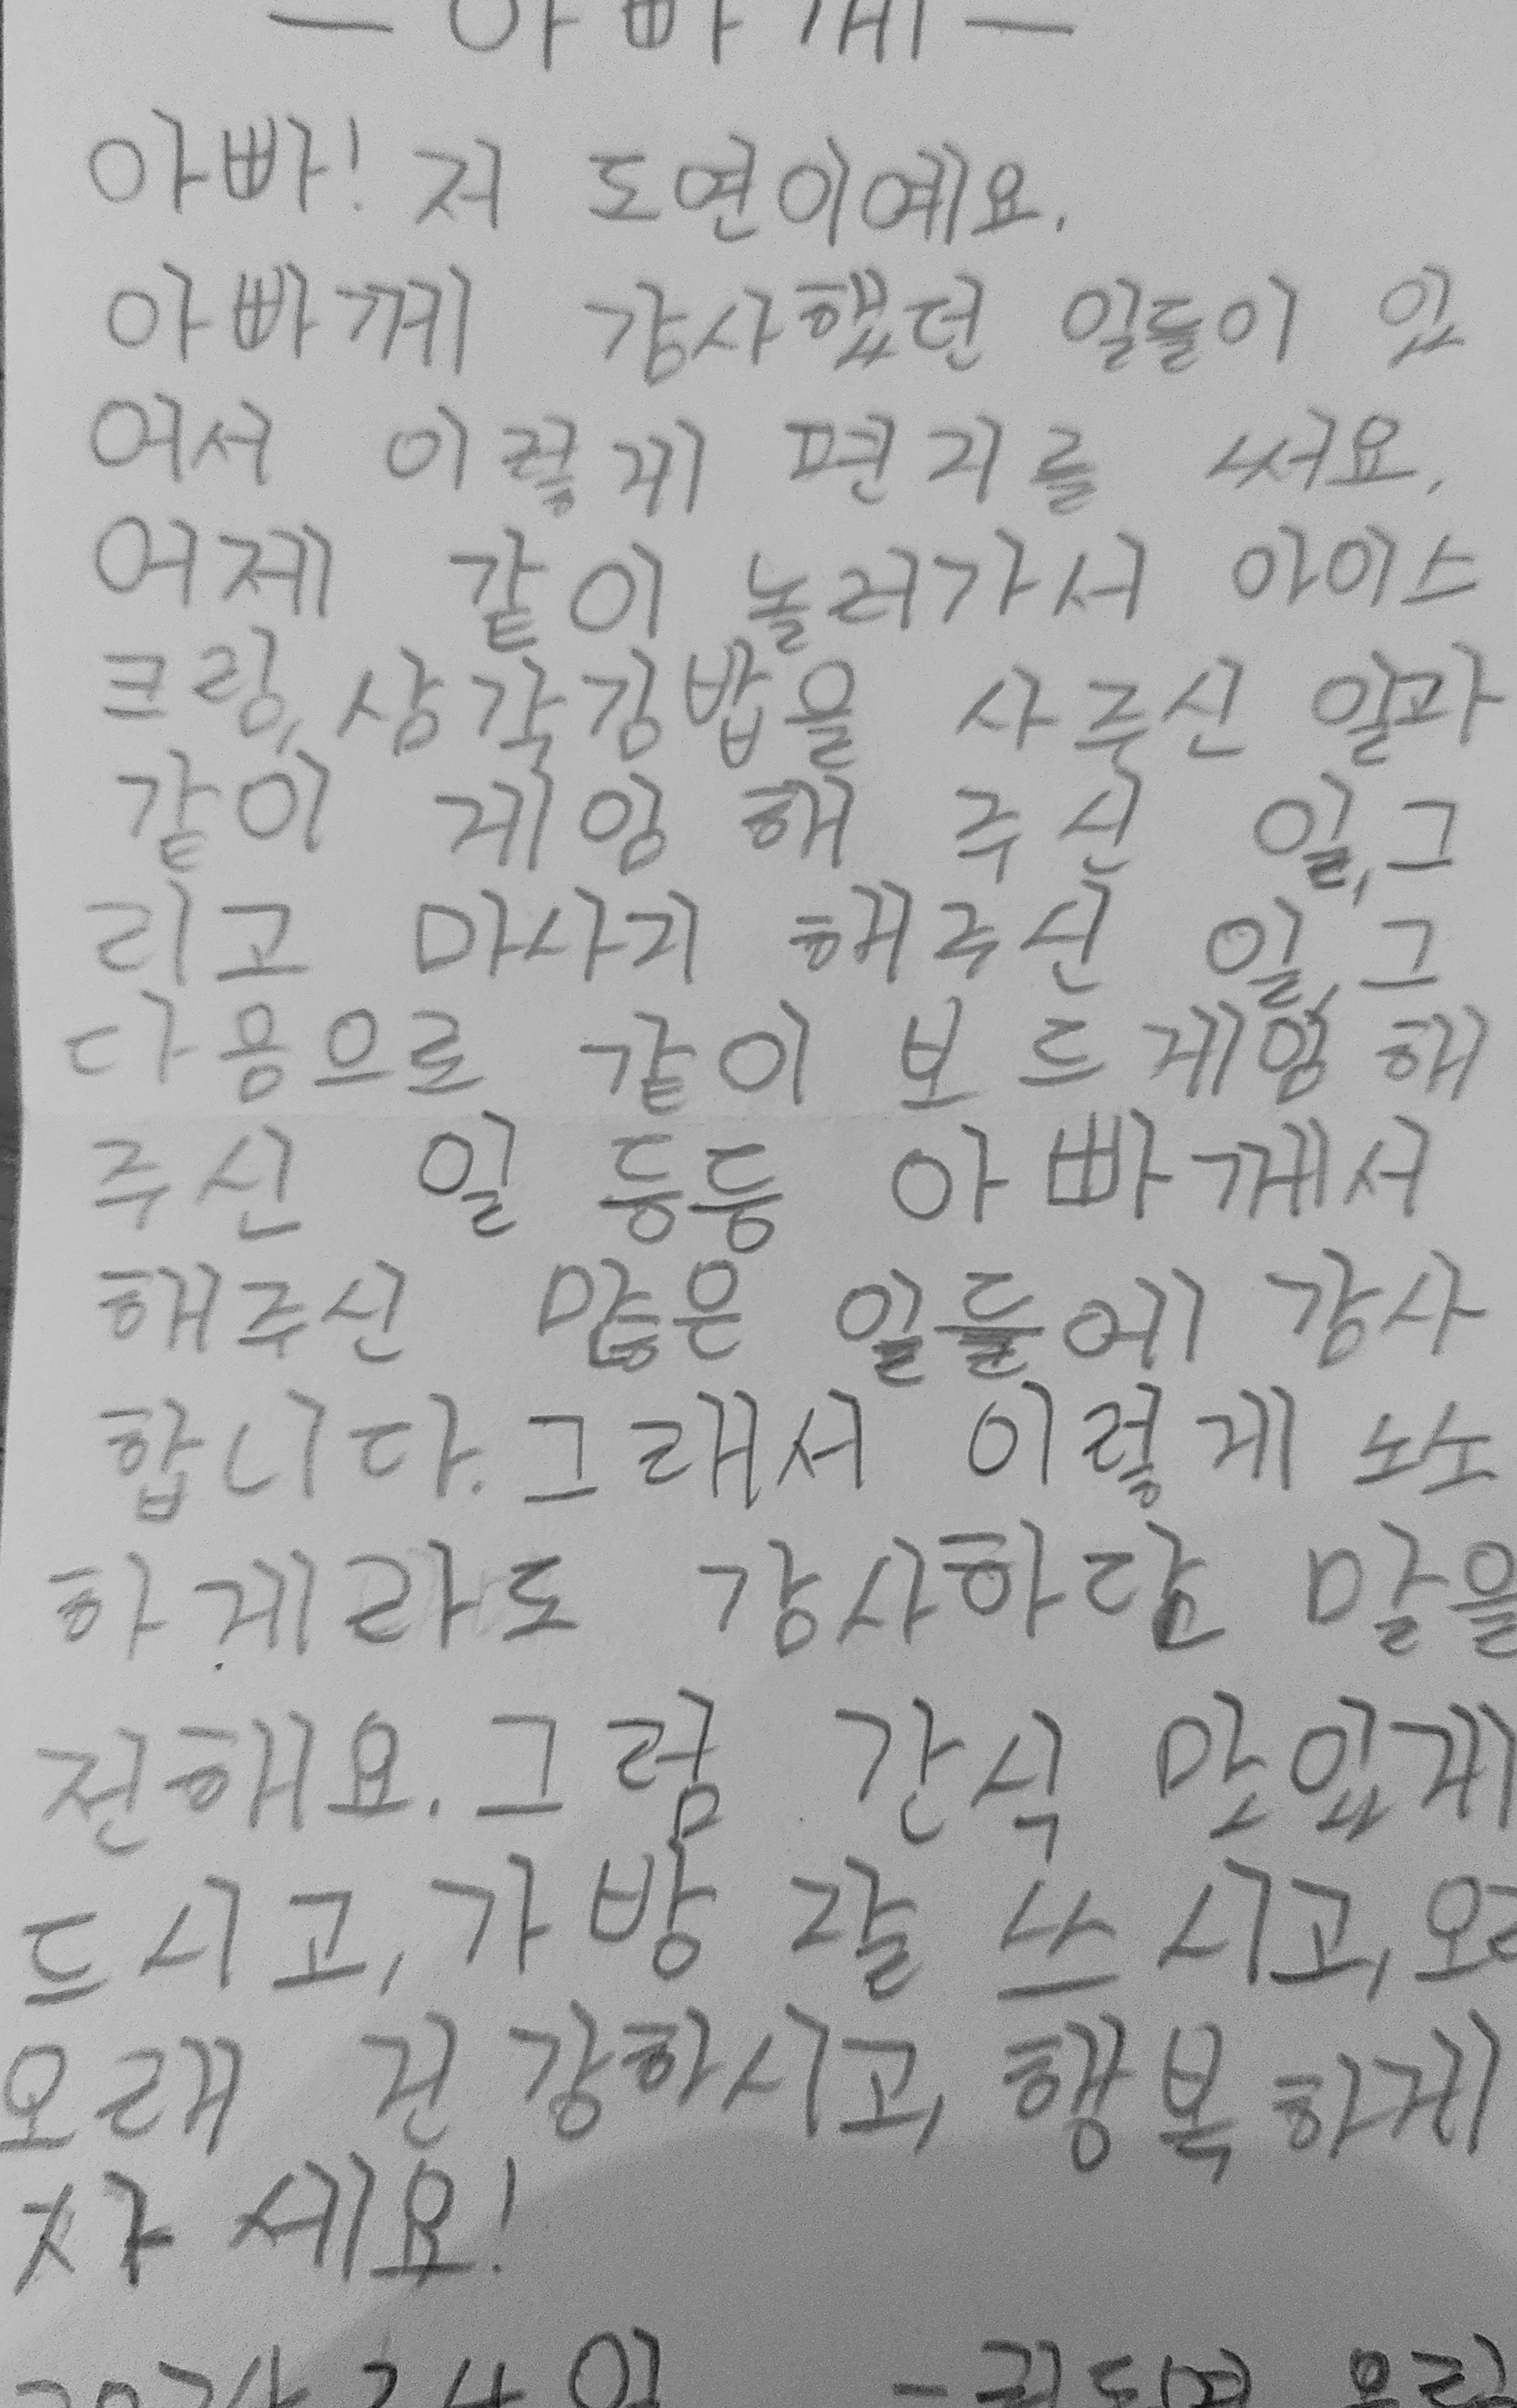 - 아빠께 -
아빠! 저 도연이에요.
아빠께 감사했던 일들이 있
어서 이렇게 편지를 써요.
어제 같이 놀러가서 아이스
크림, 삼각김밥을 사주신 일과
같이 게임 해 주신 일, 그
리고 마사지 해주신 일, 그
다음으로 같이 보드게임 해
주신 일 등등 아빠께서
해주신 많은 일들에 감사
합니다. 그래서 이렇게 소소
하게라도 감사하단 말을
전해요. 그럼 간식 맛있게
드시고, 가방 잘 쓰시고, 오래
오래 건강하시고, 행복하게
사세요!
도연 올림